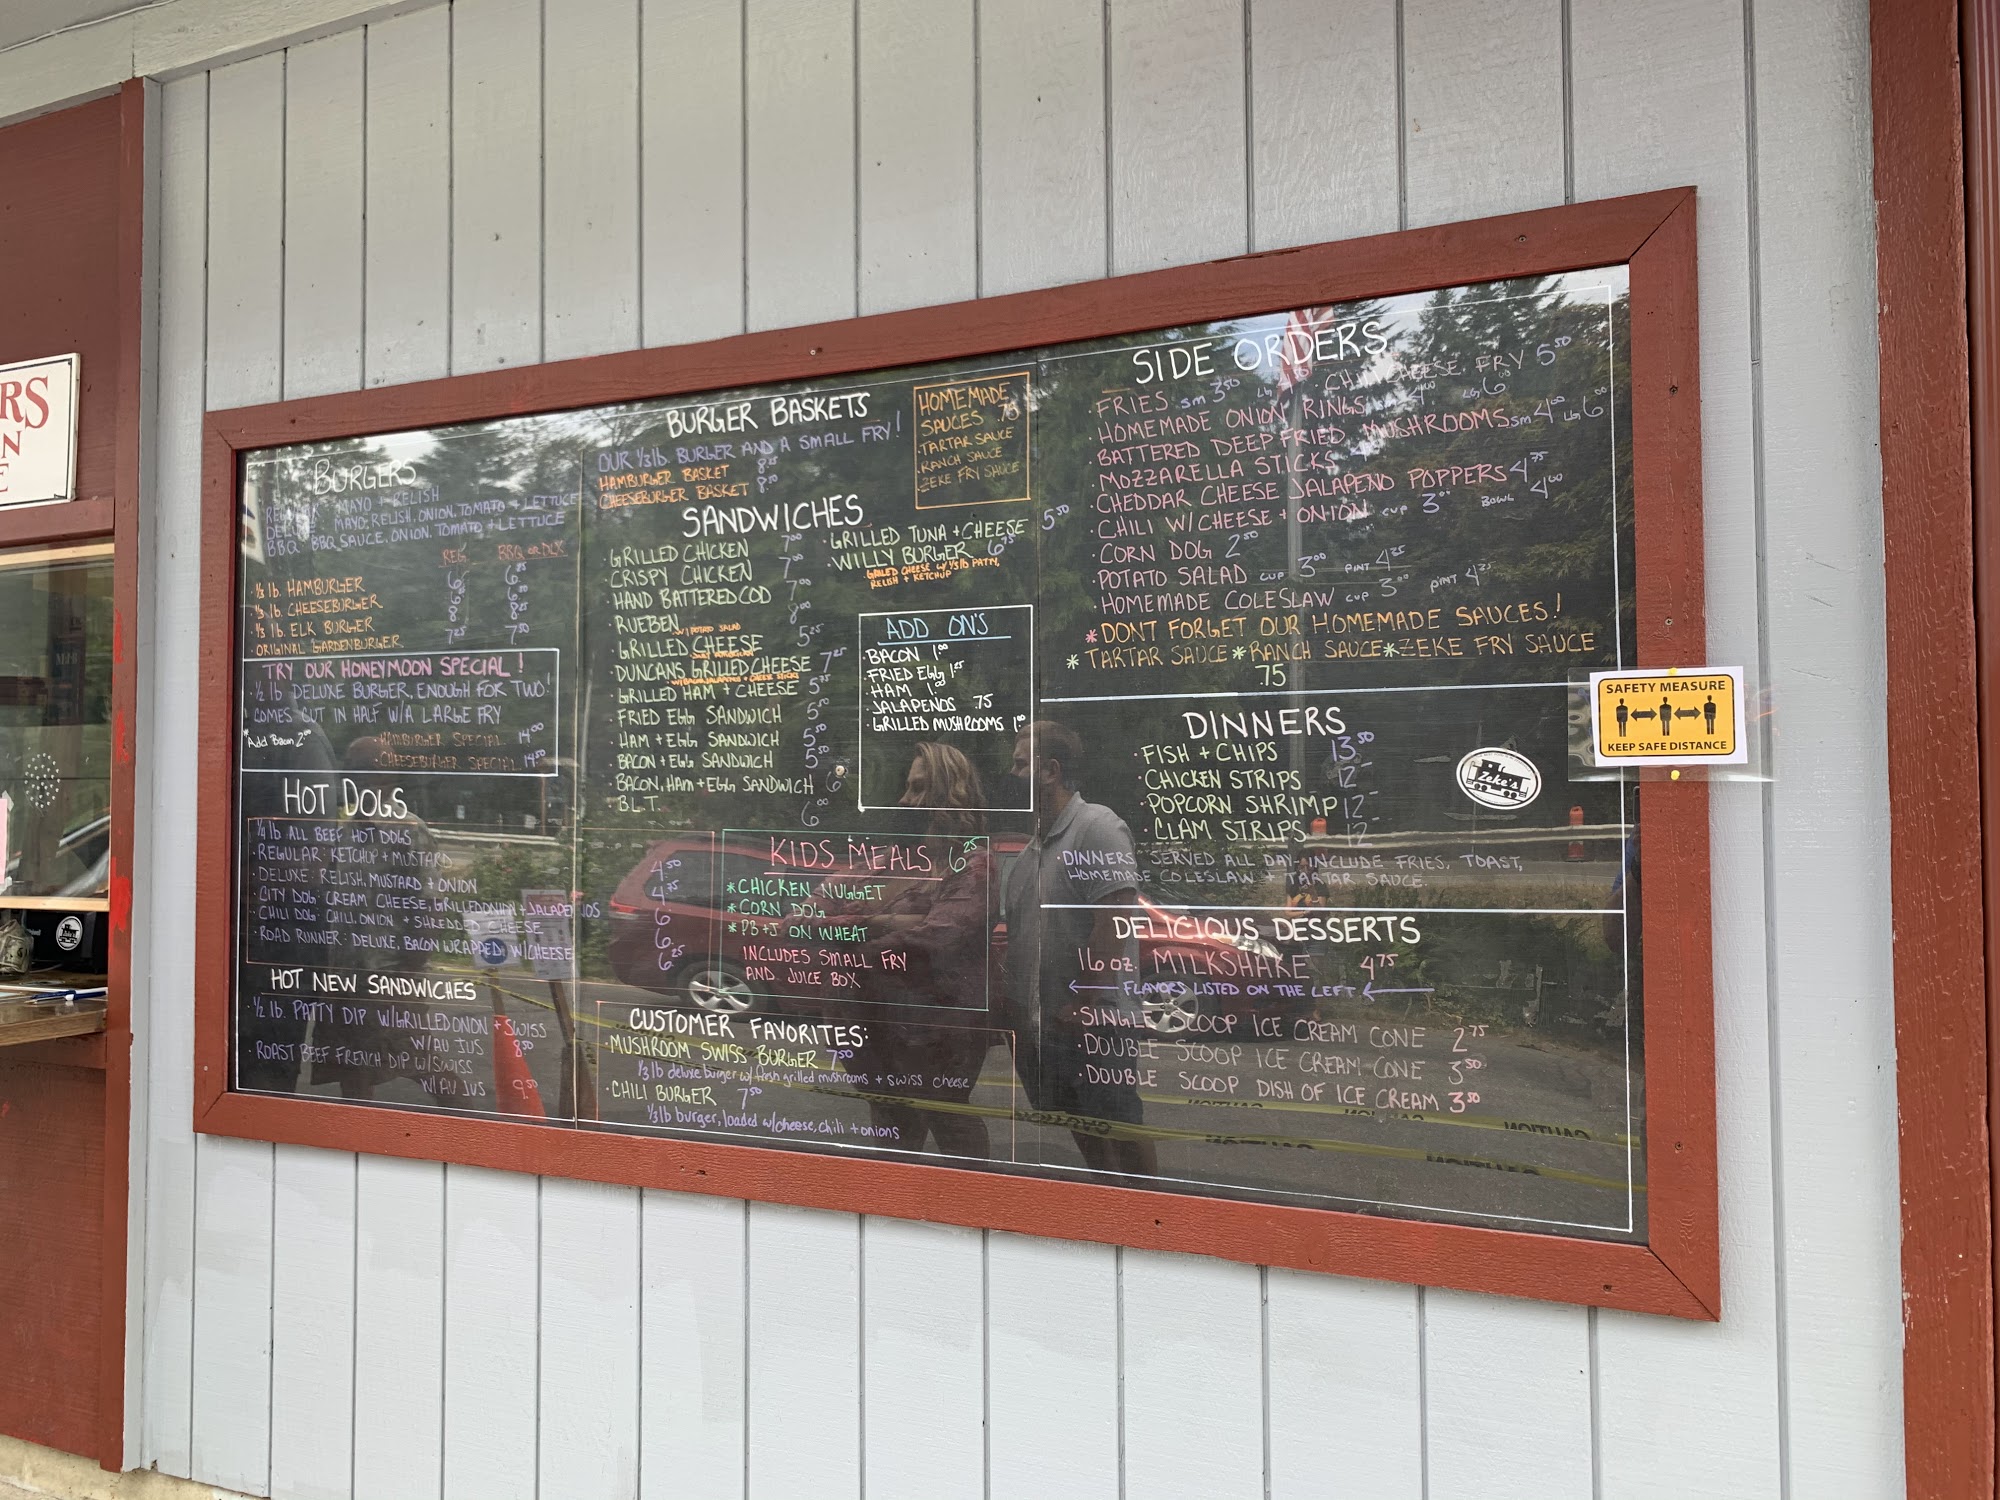 RS
N
E
BURGERS
MAYO + RELISH
MAYO, RELISH, ONION, TOMATO + LETTUCE
BBQ: BBQ SAUCE, ONION, TOMATO + LETTUCE
REG. BBQ OR DLX
1/3 lb. HAMBURGER
1/3 lb. CHEESEBURGER
1/3 lb. ELK BURGER 8
ORIGINAL GARDENBURGER 7.25 7.50
TRY OUR HONEYMOON SPECIAL!
1/2 lb DELUXE BURGER, ENOUGH FOR TWO!
COMES CUT IN HALF W/A LARGE FRY
*Add Bacon 2.00
HAMBURGER SPECIAL 14.00
CHEESEBURGER SPECIAL 14.50
HOT DOGS
1/4 lb ALL BEEF HOT DOGS
REGULAR: KETCHUP + MUSTARD 4.50
DELUXE: RELISH, MUSTARD + ONION 4.75
CITY DOG: CREAM CHEESE, GRILLED ONION + JALAPENOS 6
CHILI DOG: CHILI, ONION + SHREDDED CHEESE 6
ROAD RUNNER: DELUXE, BACON WRAPPED W/CHEESE 6.25
HOT NEW SANDWICHES
1/2 lb. PATTY DIP W/GRILLED ONON + SWISS
W/AU JUS 8.50
ROAST BEEF FRENCH DIP W/SWISS
W/AU JUS 9.50
BURGER BASKETS
OUR 1/3 lb. BURGER AND A SMALL FRY!
HAMBURGER BASKET 8.25
CHEESEBURGER BASKET 8.50
HOMEMADE
SAUCES .75
TARTAR SAUCE
RANCH SAUCE
ZEKE FRY SAUCE
SANDWICHES
GRILLED CHICKEN 7.00
CRISPY CHICKEN 7.00
HAND BATTERED COD 7.00
RUEBEN 8.00
W/POTATO SALAD
GRILLED CHEESE 5.25
DUNCANS GRILLED CHEESE 7.25
GRILLED HAM + CHEESE 5.75
FRIED EGG SANDWICH 5.00
HAM + EGG SANDWICH 5.50
BACON + EGG SANDWICH 5.50
BACON, HAM + EGG SANDWICH 6
B.L.T. 6.00
GRILLED TUNA + CHEESE 5.50
WILLY BURGER 6.75
GRILLED CHEESE W/ 1/3 lb PATTY,
RELISH + KETCHUP
ADD ON'S
BACON 1.00
FRIED EGG 1.25
HAM 1.00
JALAPENOS .75
GRILLED MUSHROOMS 1.00
KIDS MEALS 6.25
*CHICKEN NUGGET
*CORN DOG
*PB+J ON WHEAT
INCLUDES SMALL FRY
AND JUICE BOX
CUSTOMER FAVORITES:
MUSHROOM SWISS BURGER 7.50
1/3 lb deluxe burger w/ fresh grilled mushrooms + swiss cheese
CHILI BURGER 7.50
1/3 lb burger, loaded w/cheese, chili + onions
SIDE ORDERS
FRIES SM 3.50 LG CHILI CHEESE FRY 5.50
HOMEMADE ONION RINGS SM 4.00 LG 6.00
BATTERED DEEP FRIED MUSHROOMS SM 4.00 LG 6.00
MOZZARELLA STICKS
CHEDDAR CHEESE JALAPENO POPPERS 4.75
CHILI W/CHEESE + ONION CUP 3.00 BOWL 4.00
CORN DOG 2.50
POTATO SALAD CUP 3.00 PINT 4.25
HOMEMADE COLESLAW CUP 3.00 PINT 4.25
*DONT FORGET OUR HOMEMADE SAUCES!
*TARTAR SAUCE *RANCH SAUCE *ZEKE FRY SAUCE
.75
DINNERS
FISH + CHIPS 13.50
CHICKEN STRIPS 12-
POPCORN SHRIMP 12-
CLAM STRIPS 12-
Zeke's
DINNERS SERVED ALL DAY-INCLUDE FRIES, TOAST,
HOMEMADE COLESLAW + TARTAR SAUCE.
DELICIOUS DESSERTS
16 oz. MILKSHAKE 4.75
FLAVORS LISTED ON THE LEFT
SINGLE SCOOP ICE CREAM CONE 2.75
DOUBLE SCOOP ICE CREAM CONE 3.50
DOUBLE SCOOP DISH OF ICE CREAM 3.50
SAFETY MEASURE
KEEP SAFE DISTANCE